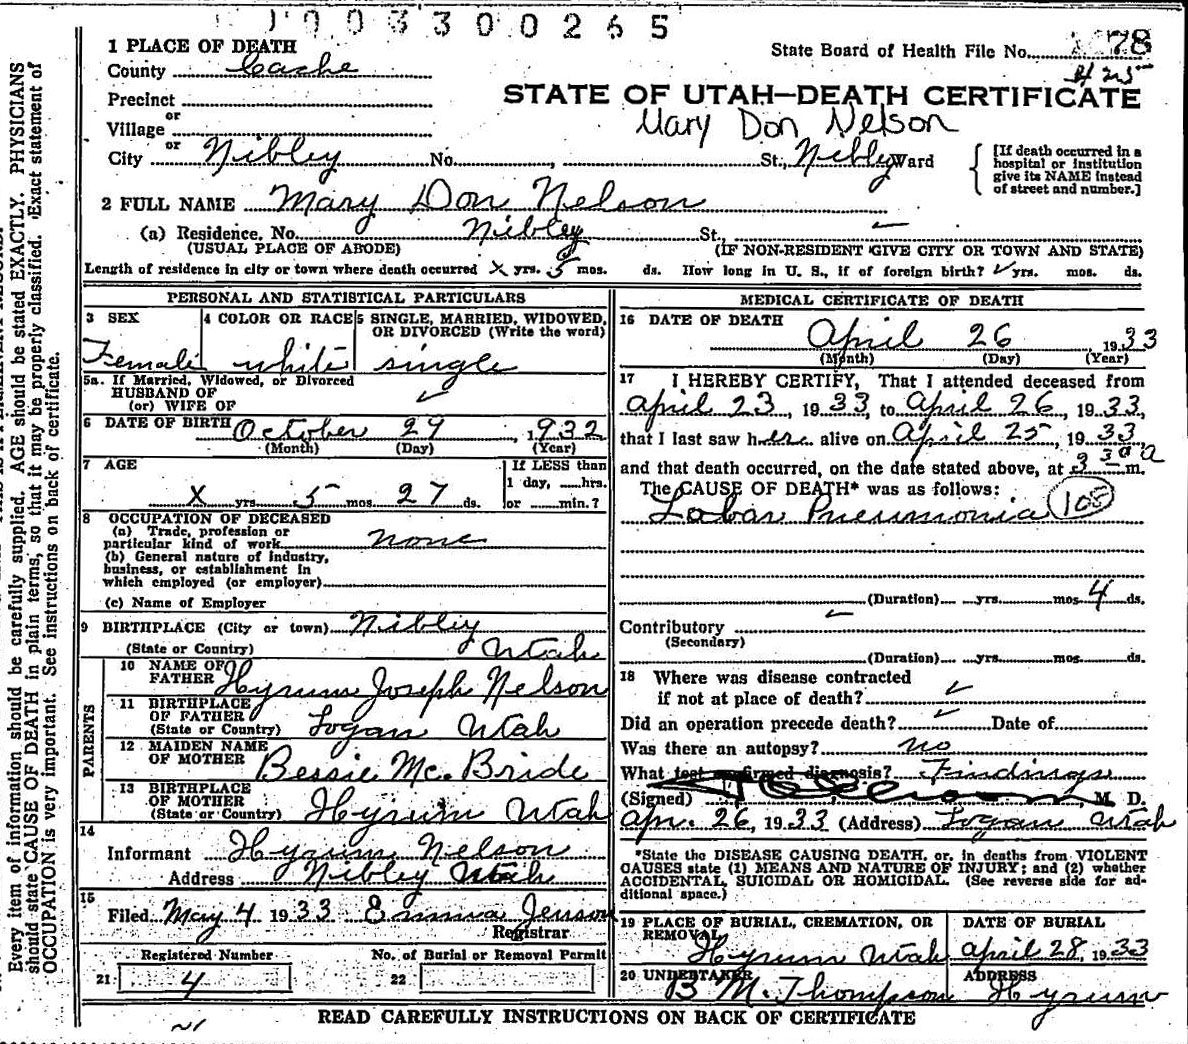 J 0 0 3 3 0 0 2 6 5
1 PLACE OF DEATH
State Board of Health File No. 78
County Cache
425
Precinct
STATE OF UTAH—DEATH CERTIFICATE
or
Village
Mary Don Nelson
or
City Nibley No. , St., Nibley Ward
[If death occurred in a
hospital or institution
give its NAME instead
of street and number.]
2 FULL NAME Mary Don Nelson
(a) Residence, No. Nibley St.,
(USUAL PLACE OF ABODE) (IF NON-RESIDENT GIVE CITY OR TOWN AND STATE)
Length of residence in city or town where death occurred x yrs. 5 mos. ds. How long in U. S., if of foreign birth? yrs. mos. ds.
PERSONAL AND STATISTICAL PARTICULARS
3 SEX
4 COLOR OR RACE
5 SINGLE, MARRIED, WIDOWED,
OR DIVORCED (Write the word)
Female white single
5a. If Married, Widowed, or Divorced
HUSBAND OF
(or) WIFE OF
6 DATE OF BIRTH October 29, 1932
(Month) (Day) (Year)
7 AGE
If LESS than
1 day, hrs.
x yrs. 5 mos. 27 ds. or min.?
8 OCCUPATION OF DECEASED
(a) Trade, profession or
particular kind of work none
(b) General nature of industry,
business, or establishment in
which employed (or employer)
(c) Name of Employer
9 BIRTHPLACE (City or town) Nibley
(State or Country) Utah
PARENTS
10 NAME OF
FATHER Hyrum Joseph Nelson
11 BIRTHPLACE
OF FATHER
(State or Country) Logan Utah
12 MAIDEN NAME
OF MOTHER Bessie Mc. Bride
13 BIRTHPLACE
OF MOTHER
(State or Country) Hyrum Utah
14
Informant Hyrum Nelson
Address Nibley Utah
15
Filed May 4 1933 Emma Jenson
Registrar
Registered Number No. of Burial or Removal Permit
21 4 22
MEDICAL CERTIFICATE OF DEATH
16 DATE OF DEATH
April 26, 1933
(Month) (Day) (Year)
17 I HEREBY CERTIFY, That I attended deceased from
April 23, 1933 to April 26, 1933,
that I last saw her alive on April 25, 1933
and that death occurred, on the date stated above, at 3 30 a m.
The CAUSE OF DEATH* was as follows:
Lobar Pneumonia 108
(Duration) yrs. mos. 4 ds.
Contributory
(Secondary)
(Duration) yrs. mos. ds.
18 Where was disease contracted
if not at place of death?
Did an operation precede death? Date of
Was there an autopsy? no
What test confirmed diagnosis? Findings
(Signed) M. D.
Apr. 26, 1933 (Address) Logan Utah
*State the DISEASE CAUSING DEATH, or, in deaths from VIOLENT
CAUSES state (1) MEANS AND NATURE OF INJURY; and (2) whether
ACCIDENTAL, SUICIDAL OR HOMICIDAL. (See reverse side for ad-
ditional space.)
19 PLACE OF BURIAL, CREMATION, OR
REMOVAL
DATE OF BURIAL
Hyrum Utah April 28, 1933
20 UNDERTAKER ADDRESS
B M. Thompson Hyrum
READ CAREFULLY INSTRUCTIONS ON BACK OF CERTIFICATE
Every item of information should be carefully supplied. AGE should be stated EXACTLY. PHYSICIANS
should state CAUSE OF DEATH in plain terms, so that it may be properly classified. Exact statement of
OCCUPATION is very important. See instructions on back of certificate.